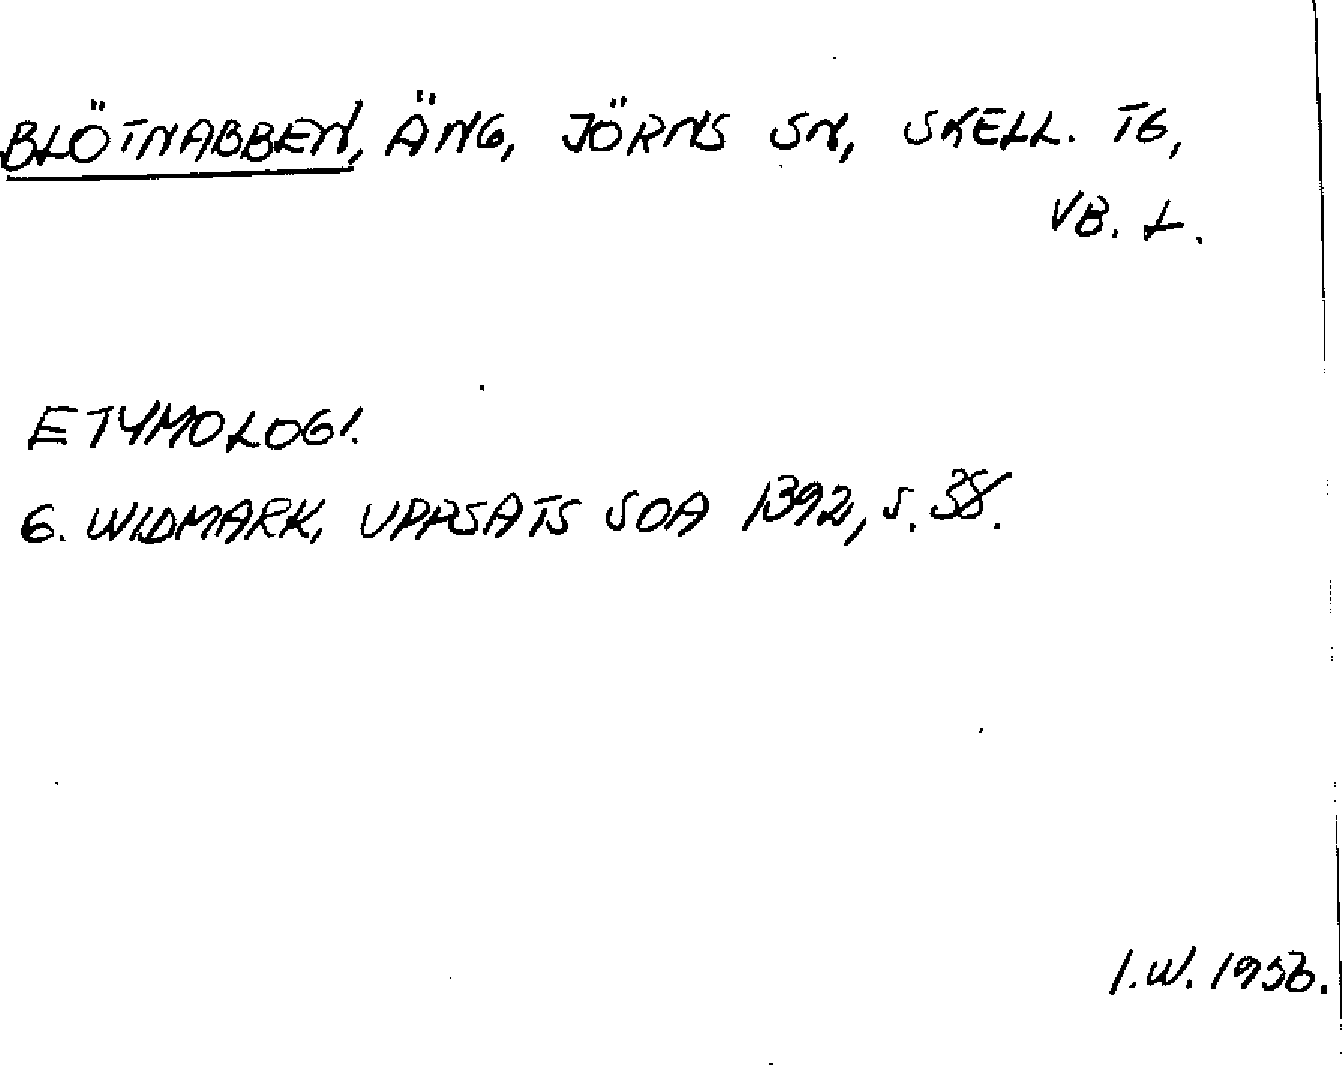 BLÖTNABBEN, ÄNG, JÖRNS SN, SKELL. TG,
VB. L.
ETYMOLOGI.
G. WIDMARK, UPPSATS SOA 1392, S. 38.
I.W. 1956.